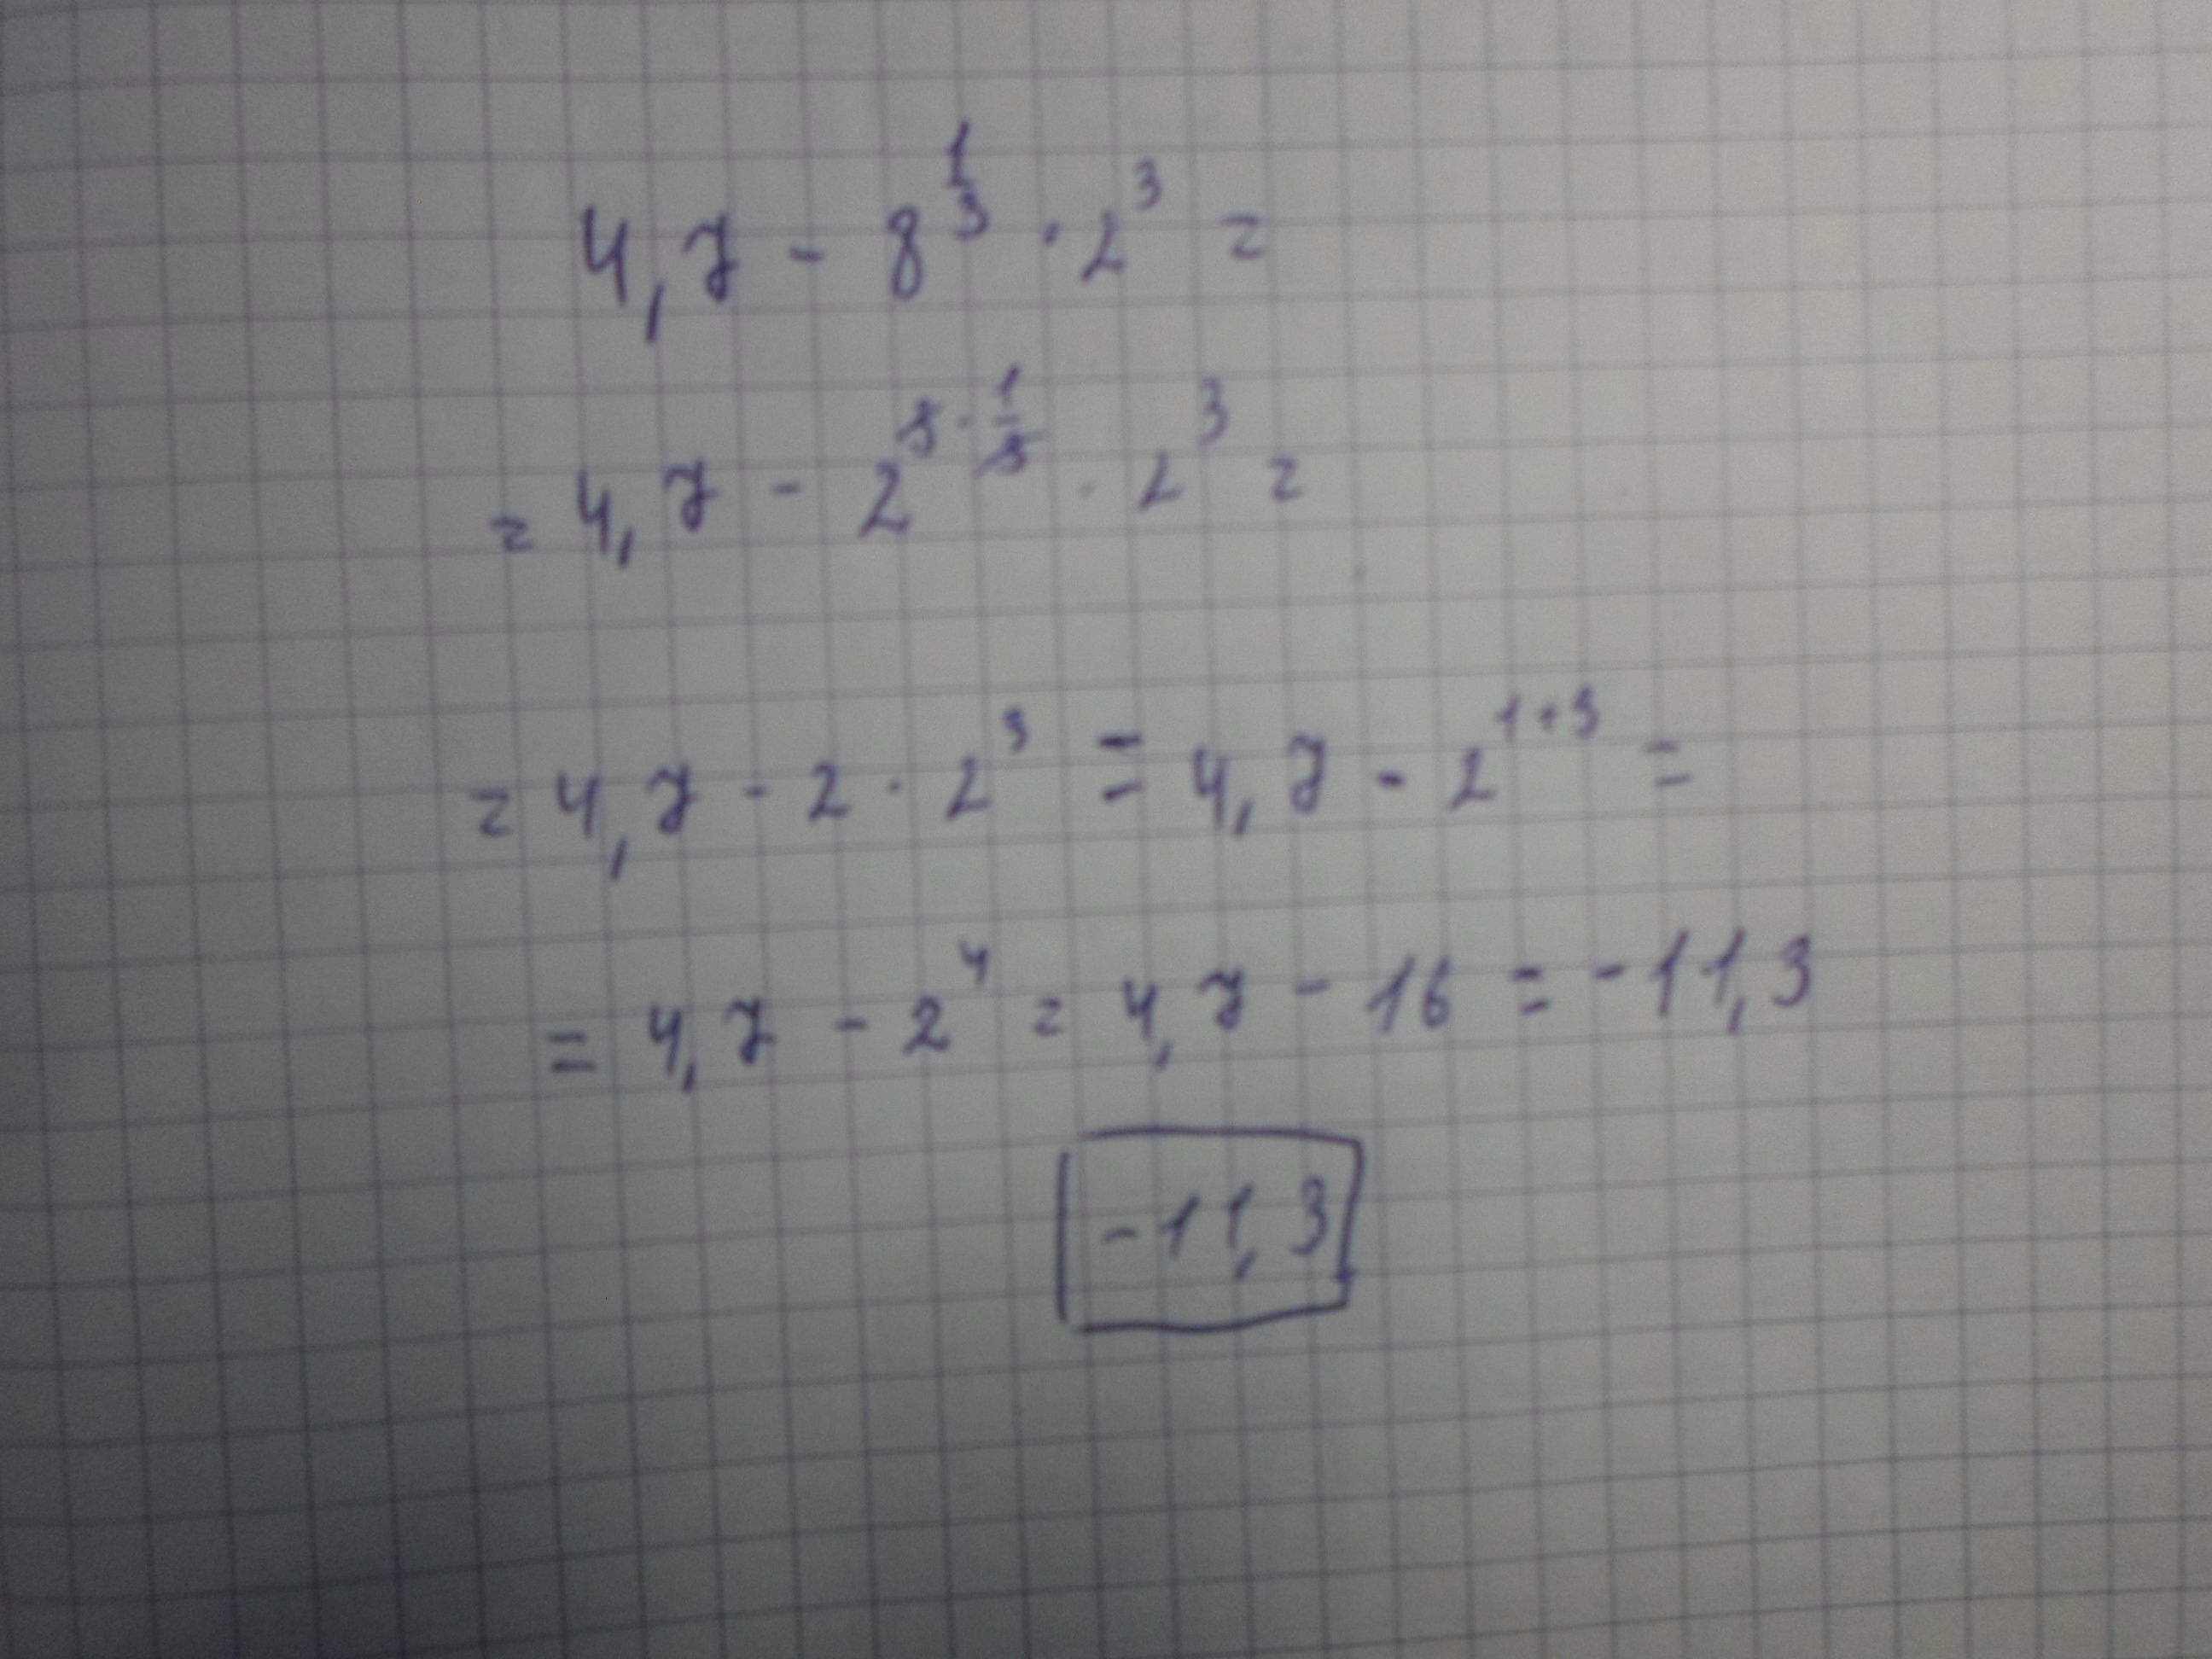 4,7 - 8^{\frac{1}{3}} · 2^3 =
= 4,7 - 2^{3 · \frac{1}{3}} · 2^3 =
= 4,7 - 2 · 2^3 = 4,7 - 2^{1+3} =
= 4,7 - 2^4 = 4,7 - 16 = -11,3
-11,3